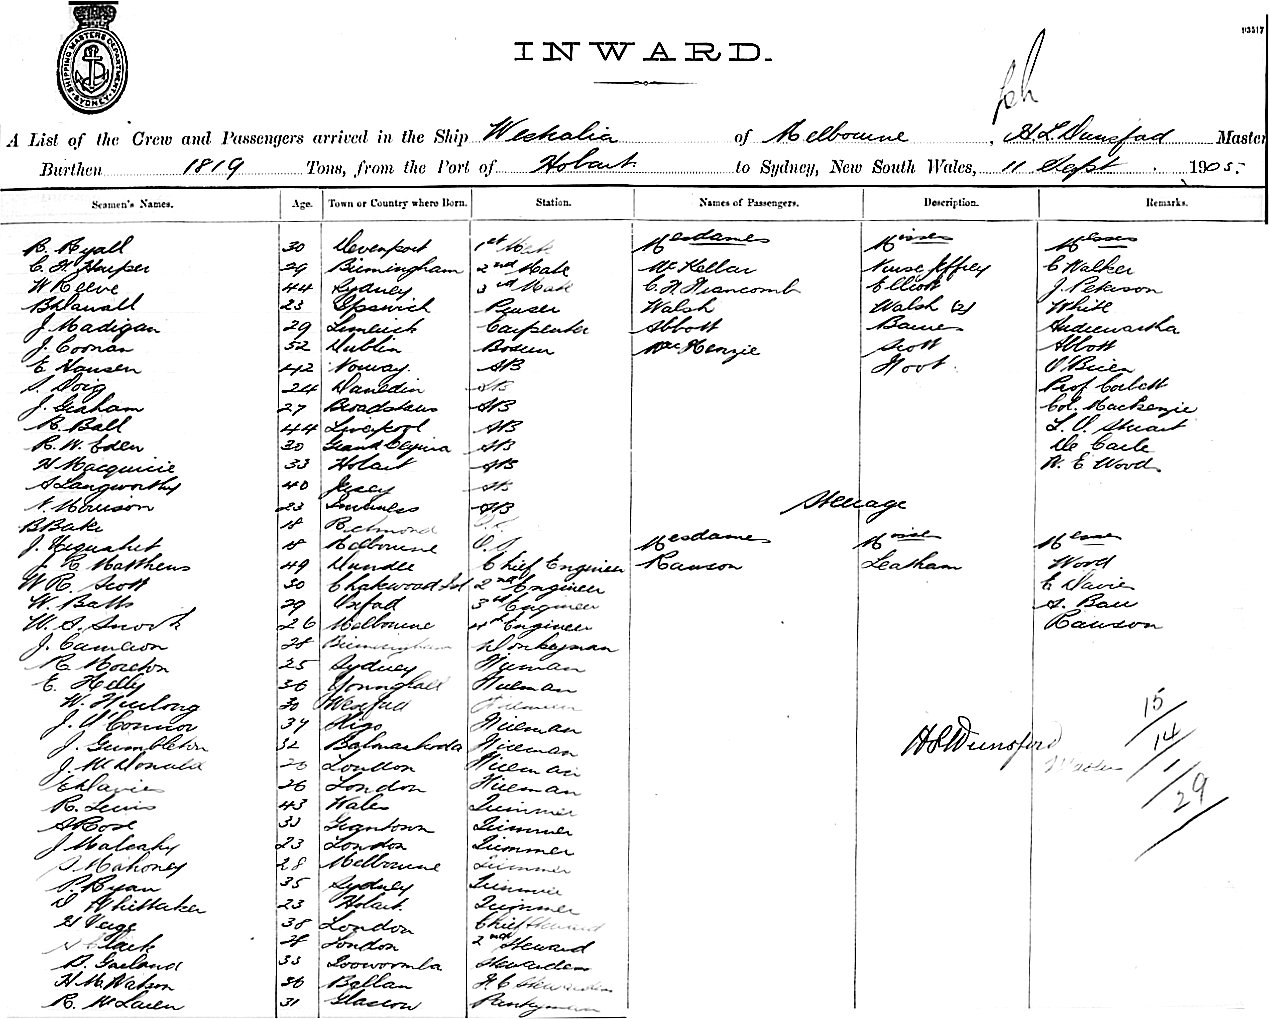 SHIPPING MASTERS DEPARTMENT SYDNEY
INWARD.
A List of the Crew and Passengers arrived in the Ship Westralia of Melbourne, H L Dunsford Master
Burthen 1819 Tons, from the Port of Hobart to Sydney, New South Wales, 11 Sept 1905
Seamen's Names. Age. Town or Country where Born. Station. Names of Passengers. Description. Remarks.
R. Ryall 30 Devenport 1st Mate Mesdames Misses Messrs
C. H. Harper 29 Birmingham 2nd Mate McKellar Nurse Jeffrey C Walker
W Reeve 44 Sydney 3rd Mate C. H. Francomb Elliott J. Peterson
23 Ipswich Purser Walsh Walsh (2) White
J. Madigan 29 Limerick Carpenter Abbott Barnes
J. Coonan 52 Dublin Bosun MacKenzie Scott Abbott
E Hansen 42 Norway AB Hoot. O'Brien
S. Doig 24 Dunedin AB Prof. Corlett
J. Graham 27 Broadstairs AB Col. Mackenzie
R. Ball 44 Liverpool AB L. O. Stuart
R. W. Eden 30 AB De Carle
H Macquirie 33 Hobart AB W. E Wood
S Langworthy 40 Jersey AB
N. Morrison 23 Inverness AB Steerage
B Bake 18 Richmond O.S.
J. 18 Melbourne O.S. Mesdames Misses Messrs
J. R. Matthews 49 Dundee Chief Engineer Rawson Leatham Wood
W R. Scott 30 2nd Engineer E Davies
W. Batts 29 Oxford 3rd Engineer
W. S. Snook 26 Melbourne 4th Engineer Rawson
J. Cameron 28 Birmingham Donkeyman
R. Moreton 25 Sydney Fireman
E. Kelly 36 Fireman
W. Furlong 30 Wexford Fireman 15
J. O'Connor 34 Sligo Fireman
J. Gumbleton 32 Fireman H L Dunsford 14
J. McDonald London Fireman Master 1
E Davies 26 London Fireman 29
R. Lewis 43 Wales Trimmer
S Rose 33 Grantown Trimmer
J Malcahy 23 London Trimmer
S Mahoney 28 Melbourne Trimmer
P. Ryan 35 Sydney Trimmer
D Whittaker 23 Hobart Trimmer
38 London Chief Steward
Clark 28 London 2nd Steward
B. Garland 33 Toowoomba Stewardess
H M Watson 36 Ballan F. C Stewardess
R. McLaren 31 Glascow Pantryman